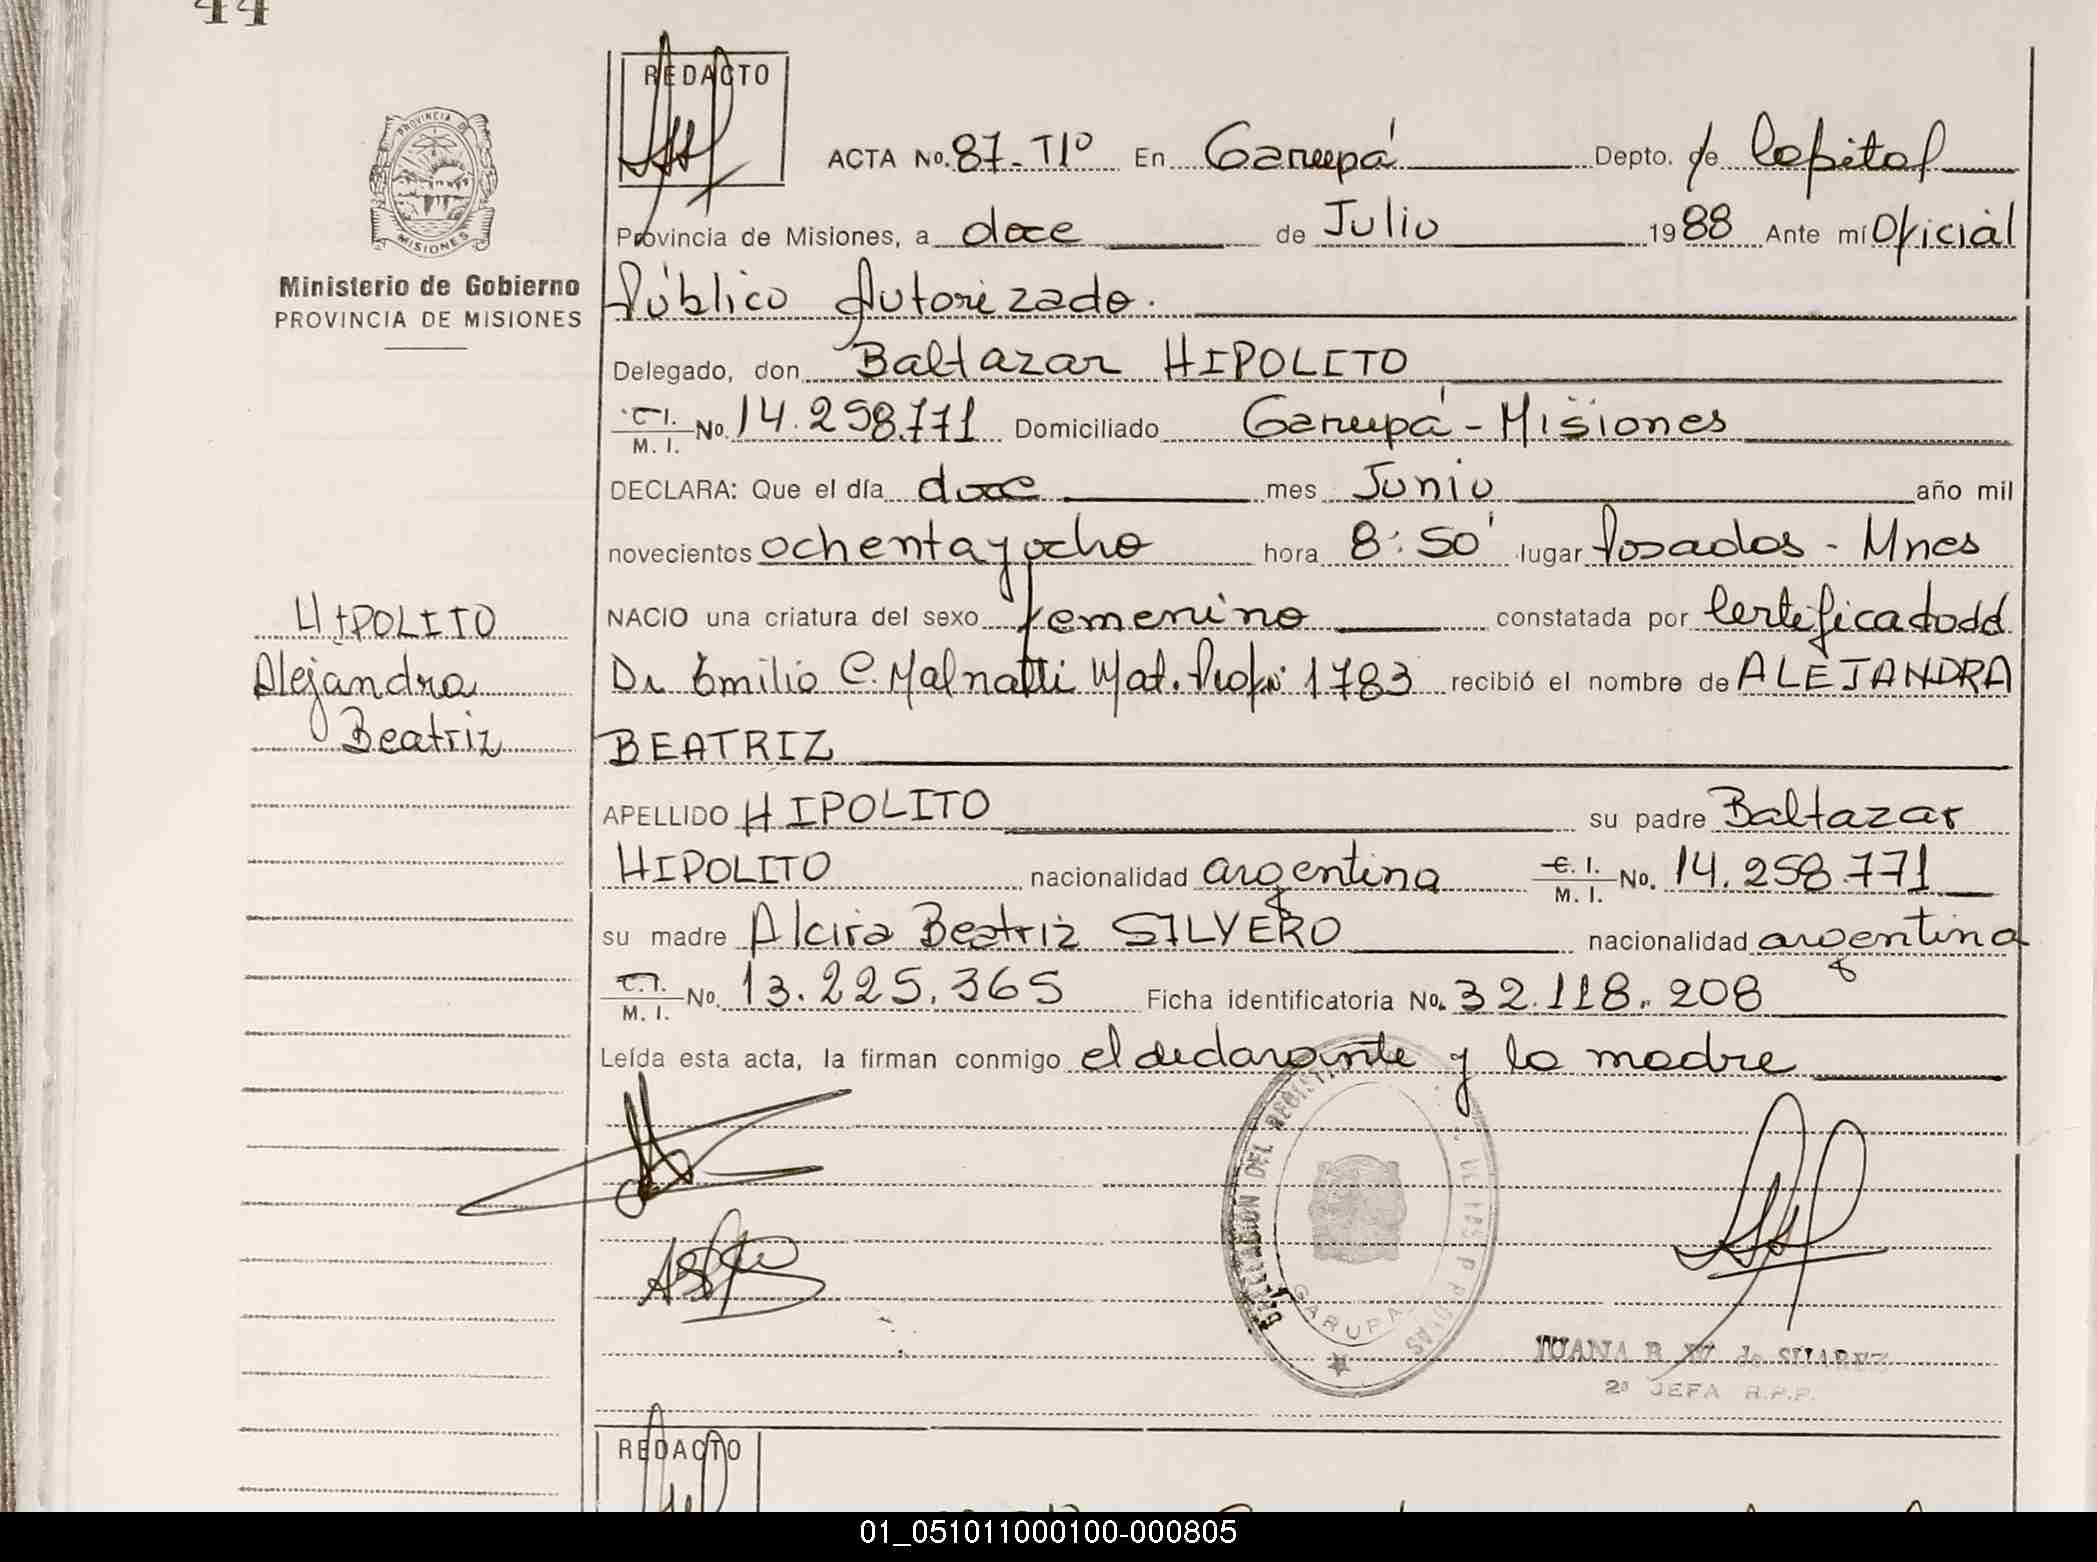 44
REDACTO
ACTA No. 87-Tlº En Garupá Depto. de Capital
Provincia de Misiones, a doce de Julio 1988 Ante mí Oficial
Público Autorizado.
PROVINCIA DE
MISIONES
Ministerio de Gobierno
PROVINCIA DE MISIONES
Delegado, don Baltazar HIPOLITO
C.I. M. I. No. 14.258.771 Domiciliado Garupá - Misiones
DECLARA: Que el día doce mes Junio año mil
novecientos ochenta y ocho hora 8:50' lugar Posadas - Mnes
HIPOLITO
Alejandra
Beatriz
NACIO una criatura del sexo femenino constatada por Certificado dd
Dr Emilio C. Malnatti Mat. Prof. Nº 1783 recibió el nombre de ALEJANDRA
BEATRIZ
APELLIDO HIPOLITO su padre Baltazar
HIPOLITO nacionalidad argentina C. I. M. I. No. 14.258.771
su madre Alcira Beatriz SILVERO nacionalidad argentina
C.I. M. I. No. 13.225.365 Ficha identificatoria No. 32.118.208
Leída esta acta, la firman conmigo el declarante y la madre
DELEGACION DEL REGISTRO DE LAS P
GARUPA
JUANA R. W de SUAREZ
2ª JEFA R.P.P.
REDACTO
01_051011000100-000805